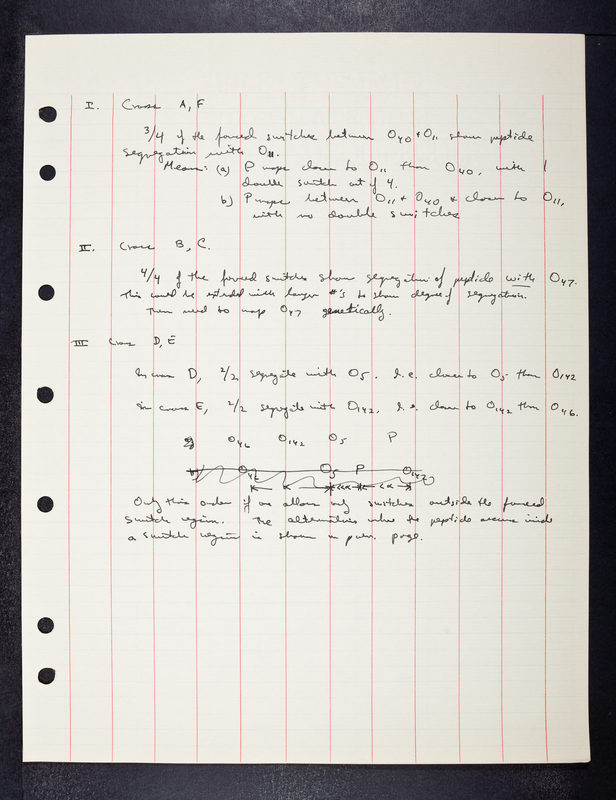 I. Cross A, F
3/4 of the forced switches between O40 + O11 show peptide
segregation with O11.
Means: (a) P maps closer to O11 than O40, with 1
double switch out of 4.
b) P maps between O11 + O40 & closer to O11,
with no double switches
II. Cross B, C.
4/4 of the forced switches show segregation of peptide with O47.
This could be extended with larger #'s to show degree of segregation.
Then need to map O47 genetically.
III Cross D, E
In cross D, 2/2 segregate with O5. I.e. closer to O5 than O142
In cross E, 2/2 segregate with O142. I.e. closer to O142 than O46.
O46 O142 O5 P
O46 O5 P O142
Only this order if one allows only switches outside the forced
switch region. The alternatives where the peptide occurs inside
a switch region is shown on prev. page.